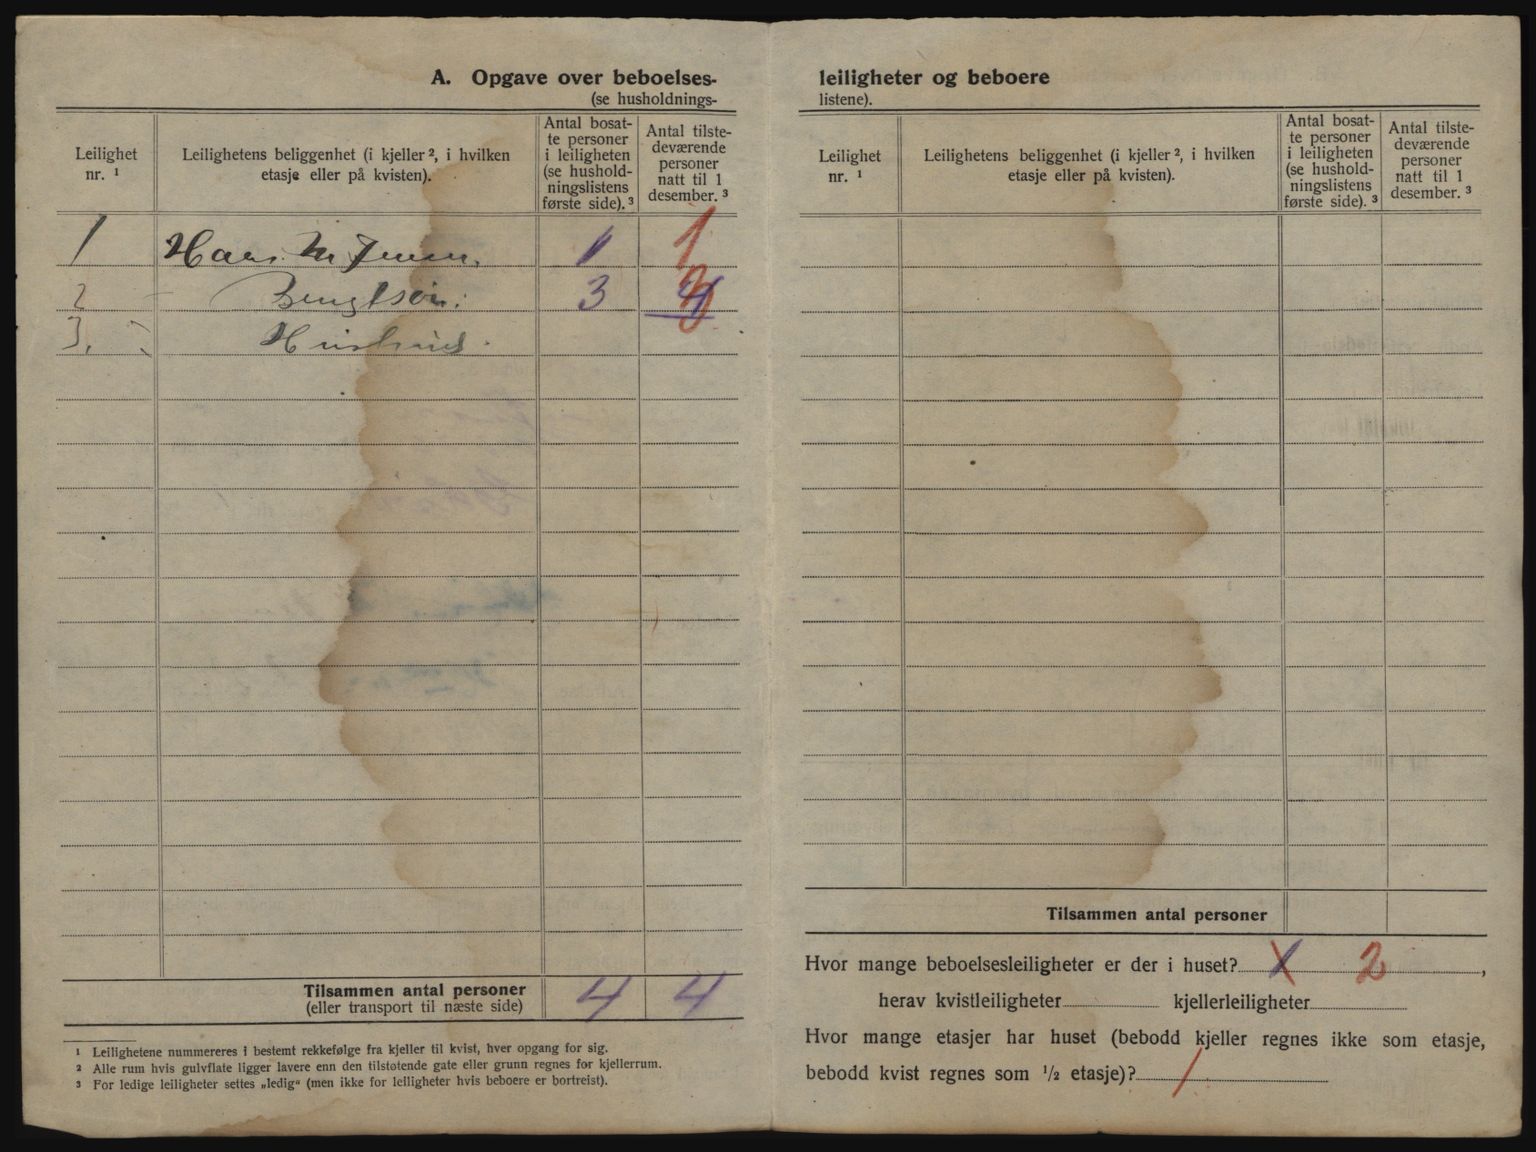 A. Opgave over beboelses-
(se husholdnings-
Leilighet nr. ¹
Leilighetens beliggenhet (i kjeller ², i hvilken etasje eller på kvisten).
Antal bosat-te personer i leiligheten (se hushold-ningslistens første side). ³
Antal tilste-deværende personer natt til 1 desember. ³
1 Hans M Jensen. 1 1
2 Bengtson. 3 3
3.
Tilsammen antal personer 4 4
(eller transport til næste side)
¹ Leilighetene nummereres i bestemt rekkefølge fra kjeller til kvist, hver opgang for sig.
² Alle rum hvis gulvflate ligger lavere enn den tilstøtende gate eller grunn regnes for kjellerrum.
³ For ledige leiligheter settes „ledig“ (men ikke for leiligheter hvis beboere er bortreist).
leiligheter og beboere
listene).
Leilighet nr. ¹
Leilighetens beliggenhet (i kjeller ², i hvilken etasje eller på kvisten).
Antal bosat-te personer i leiligheten (se hushold-ningslistens første side). ³
Antal tilste-deværende personer natt til 1 desember. ³
Tilsammen antal personer
Hvor mange beboelsesleiligheter er der i huset? 1 2,
herav kvistleiligheter kjellerleiligheter
Hvor mange etasjer har huset (bebodd kjeller regnes ikke som etasje,
bebodd kvist regnes som ½ etasje)? 1